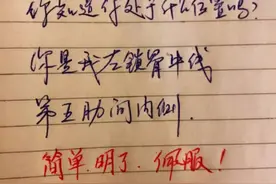 你知道你处于什么位置吗?
你是我左锁骨中线
第五肋间内侧.
简单.明了.佩服!